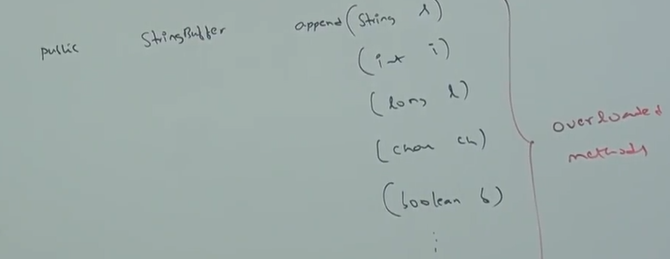 public StringBuffer append(String s)
(int i)
(long l)
(char ch)
(boolean b)
⋮
overloaded
methods